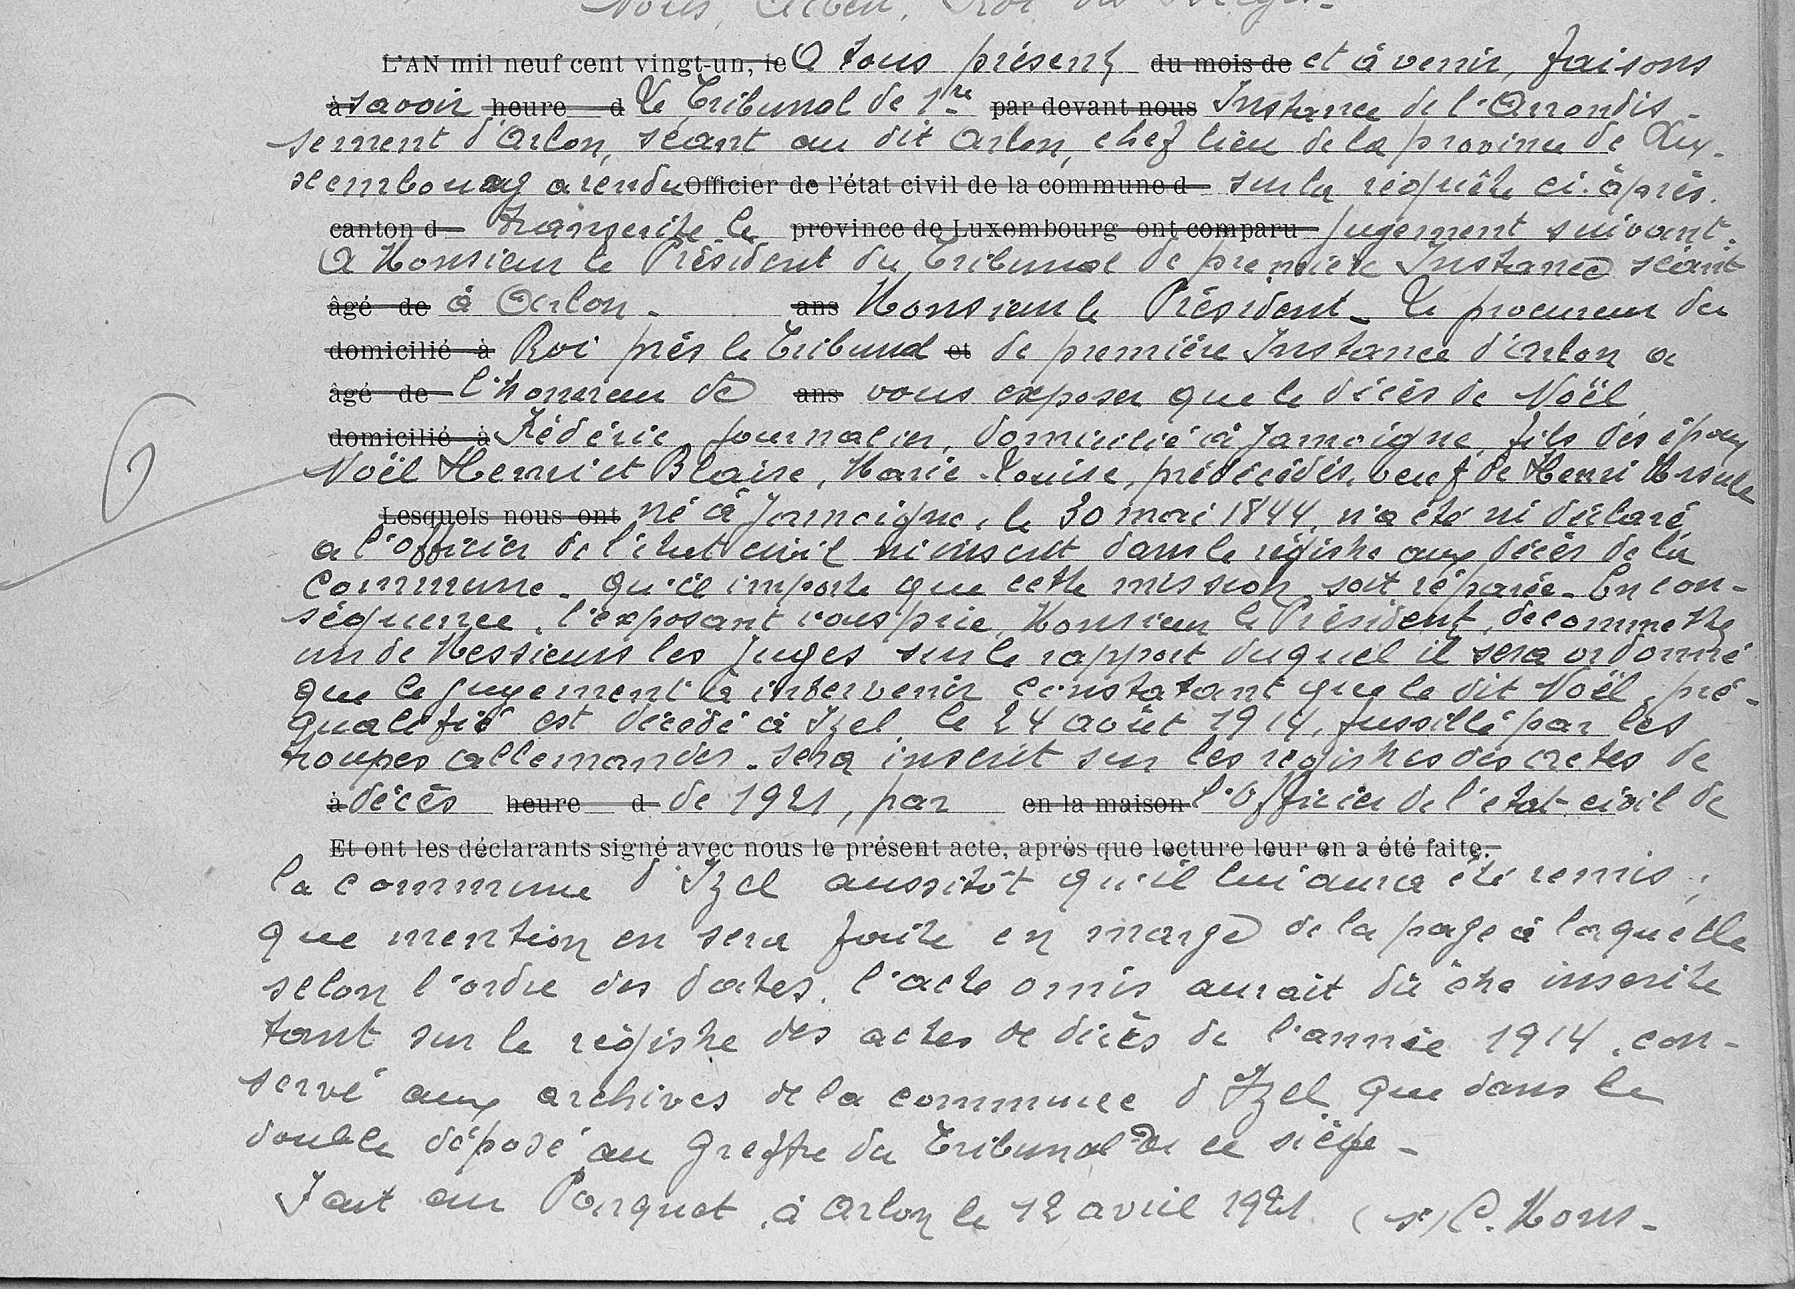 Nous, Albert, Roi des Belges.
L'AN mil neuf cent vingt-un, le A tous présents du mois de et à venir, faisons
à savoir heure d Le Tribunal de 1re par devant nous Instance de l'Arrondis-
sement d'Arlon, séant au dit Arlon, chef lieu de la province de Lux-
xembourg a rendu Officier de l'état civil de la commune d sur la réquête ci-après
canton d transcrite le province de Luxembourg ont comparu jugement suivant:
A Monsieur le Président du Tribunal de première Instance séant
âgé de à Arlon. ans Monsieur le Président - Le procureur du
domicilié à Roi près le Tribunal et de première Instance d'Arlon a
âgé de l'honneur de ans vous exposer que le décès de Noël
domicilié à Frédéric, journalier, domicilié à Jamoigne, fils des époux
Noël Henri et Blaise, Marie-Louise, prédécédés, veuf de Henri Ursule
Lesquels nous ont né à Jamoigne, le 30 mai 1844, n'a été ni déclaré
a l'officier de l'état civil ni inscrit dans le régistre aux décès de la
Commune - qu'il importe que cette mission soit réparée - En con-
séquence, l'exposant vous prie, Monsieur le Président, de commettre
un de Messieurs les Juges sur le rapport duquel il sera ordonné
que le jugement à intervenir constatant que le dit Noël, pré-
qualifié est décédé à Izel, le 24 août 1914, fussillé par les
troupes allemandes - sera inscrit sur les registres des actes de
à décès heure d de 1921, par en la maison l'Officier de l'etat-civil de
Et ont les déclarants signé avec nous le présent acte, après que lecture leur en a été faite.
la commune d'Izel aussitôt qu'il lui aura été remis;
que mention en sera faite en marge de la page à laquelle
selon l'ordre des dates, l'acte omis aurait dû être inscrite
tant sur le régistre des actes de décès de l'année 1914, con-
servé aux archives de la commune d'Izel, que dans le
double déposé au Greffe du Tribunal de ce siège -
Fait au Parquet, à Arlon le 12 avril 1921 (sé) C. Hons -